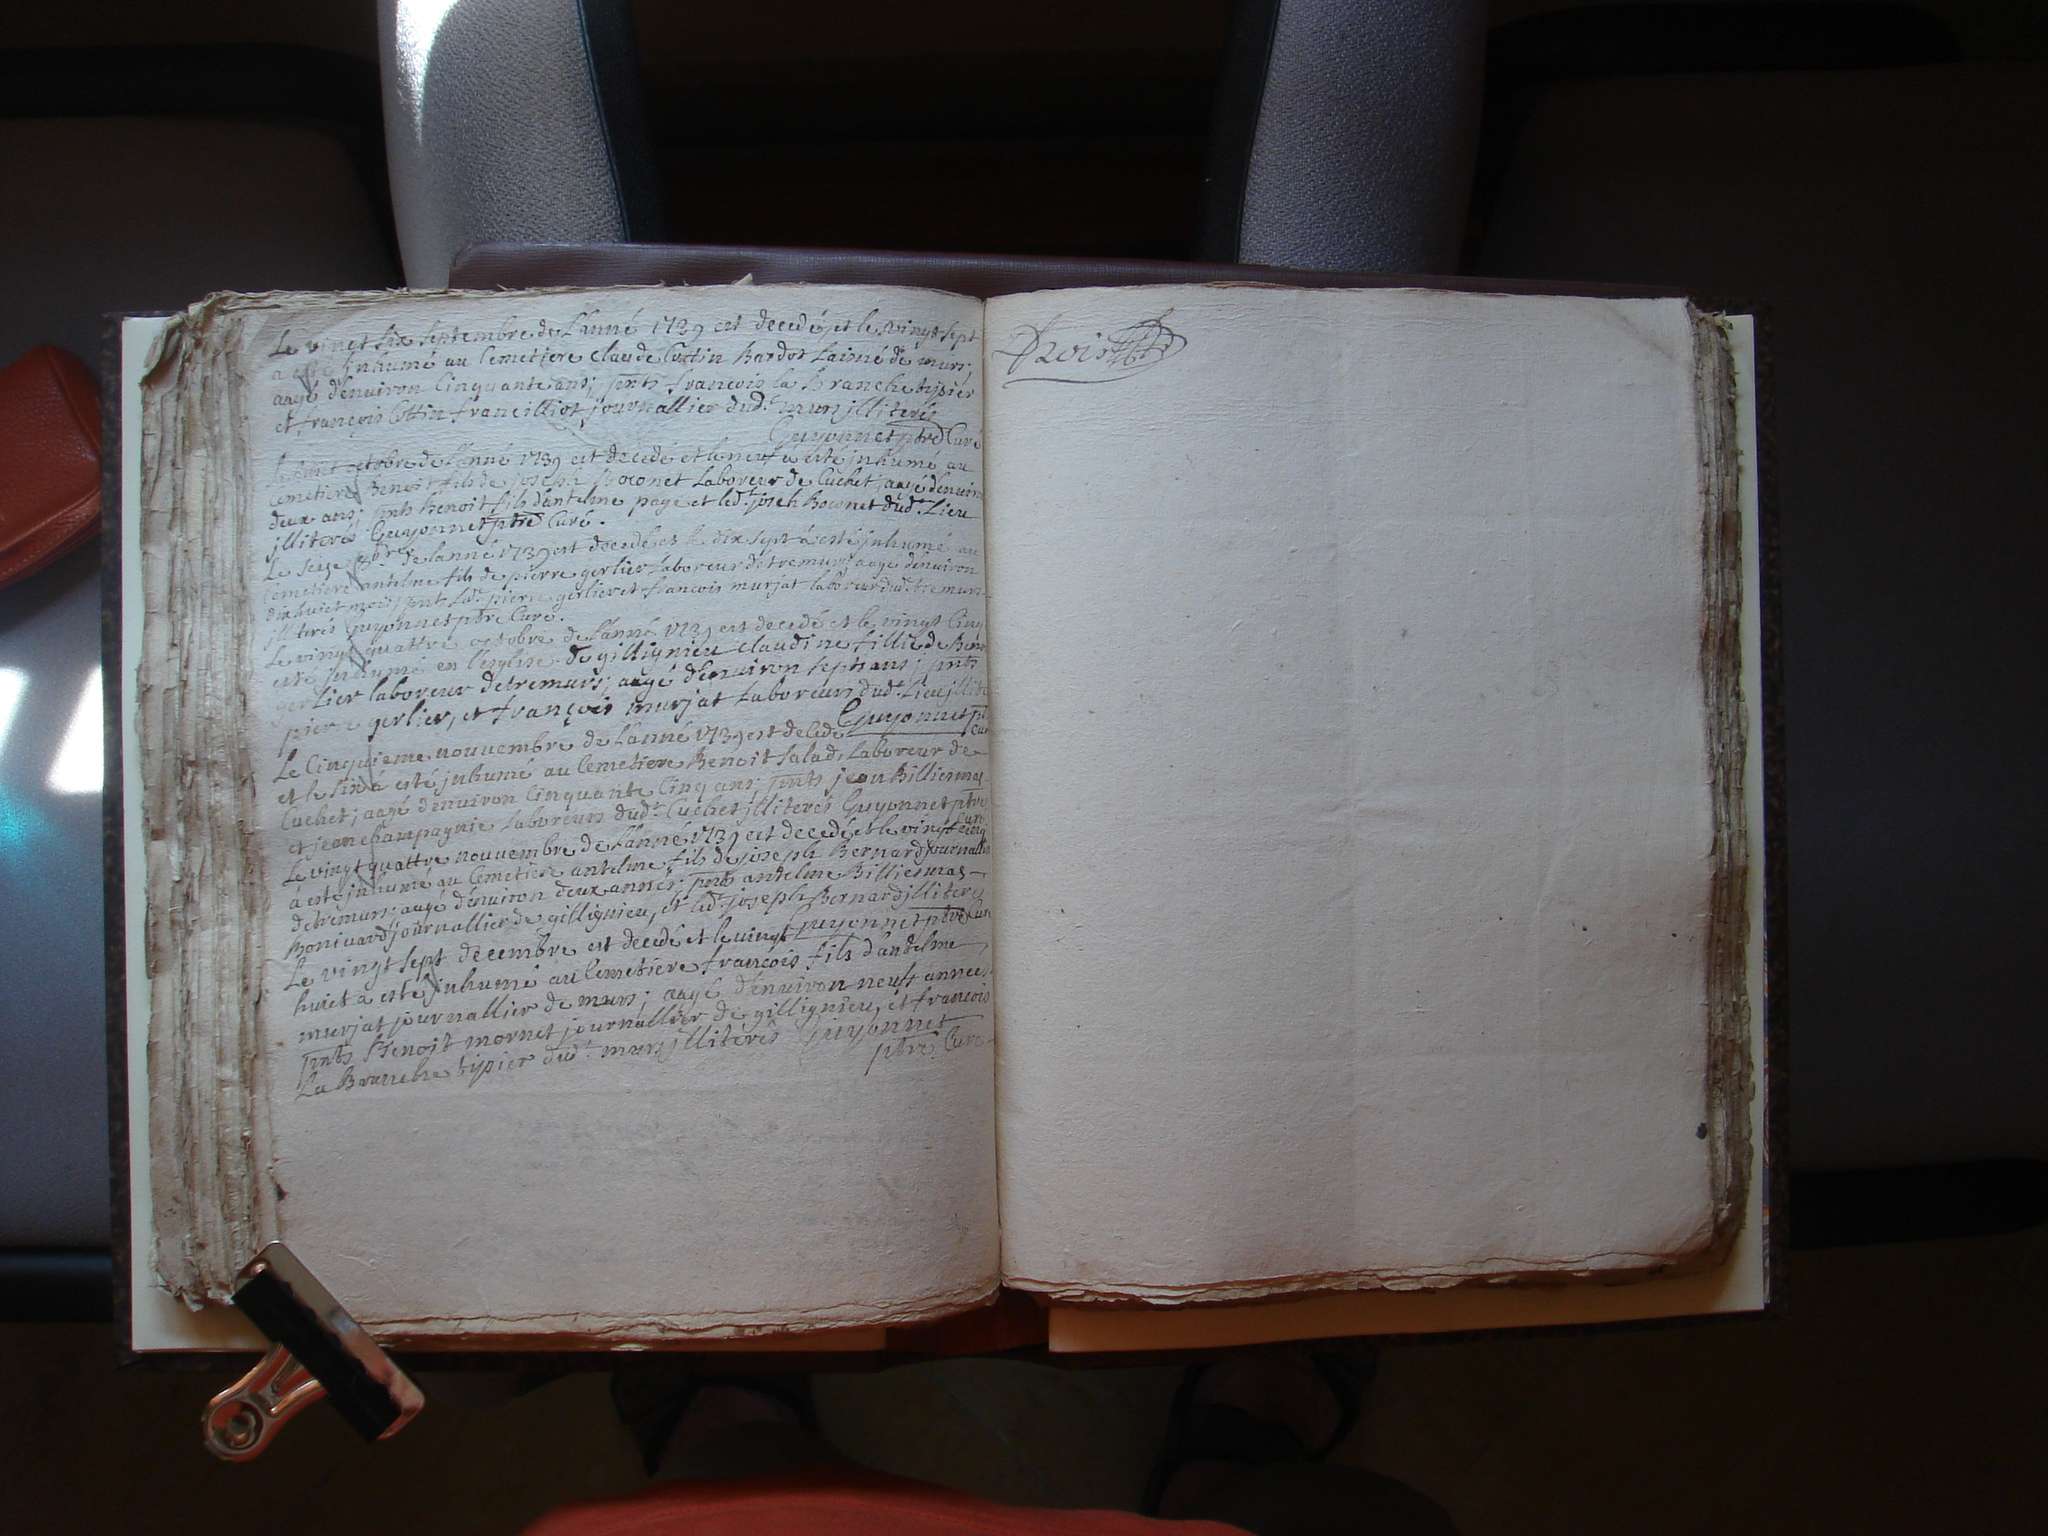 Le vingt six septembre de Lanné 1739 est decedé, et le vingt sept
a esté inhumé au Cemetiere claude Cottin Bardot Lainné de murs;
aagé d'enuiron Cinquante ans; pnts francois la Branche tixier
et françois Cottin francilliot journallier dudt. murs jlliterés
Guyonnet ptre Curé
Le huict octobre de Lanné 1739 est decedé et le neuf a esté jnhumé au
Cemetiere Benoit fils de joseph Boconet Laboreur de Cuchet, aagé d'enuiron
deux ans; pnts Benoit fils dantelme page et ledt. joseh Boconet dudt. Lieu
jlliterés Guyonnet ptre Curé.
Le seize 8bre de lanné 1739 est decedé et le dix sept a esté jnhumé au
Cemetiere antelme fils de pierre gerlier Laboreur de tremurs aagé d'enuiron
dixhuict mois; pnts ledt. pierre gerlier et francois murjat laboreur dudt. tremurs
jlliterés Guyonnet ptre Curé.
Le vingt quattre octobre de Lanné 1739 est decedé et le vingt Cinq
esté jnhumé en l'esglise de gillignieu claudine fillie de Ben
gerlier laboreur de tremurs; aagé d'enuiron sept ans; pnts
pierre gerlier, et françois murjat Laboreurs dudt. Lieu jllite
Guyonnet pt
cu
Le Cinquieme nouvembre de Lanné 1739 est decedé
et le six a esté jnhumé au Cemetiere Benoit Salad, Laboreur de
Cuchet; aagé d'enuiron Cinquante Cinq ans; pnts jean Billiemas
et jean champagnie Laboreurs dudt. Cuchet jlliterés Guyonnet ptre
Curé
Le vingt quattre nouvembre de Lanné 1739 est decedé et le vingt cinq
à esté jnhumé au Cemetiere antelme fils de joseph Bernard journallie
de tremurs; aagé d'enuiron deux années; pnts antelme Billiemas
Boniuard journallier de gillignieu, et ledt. joseph Bernard jlliteres
Guyonnet ptre Curé
Le vingt sept decembre est decedé et le vingt
huict a esté jnhumé au Cemetiere francois fils d'antelme
murjat journallier de murs; aagé d'enuiron neuf années
pnts Benoit mornet journallier de gillignieu, et francois
La Branche tixier dudt. murs jlliterés Guyonnet
ptre Curé